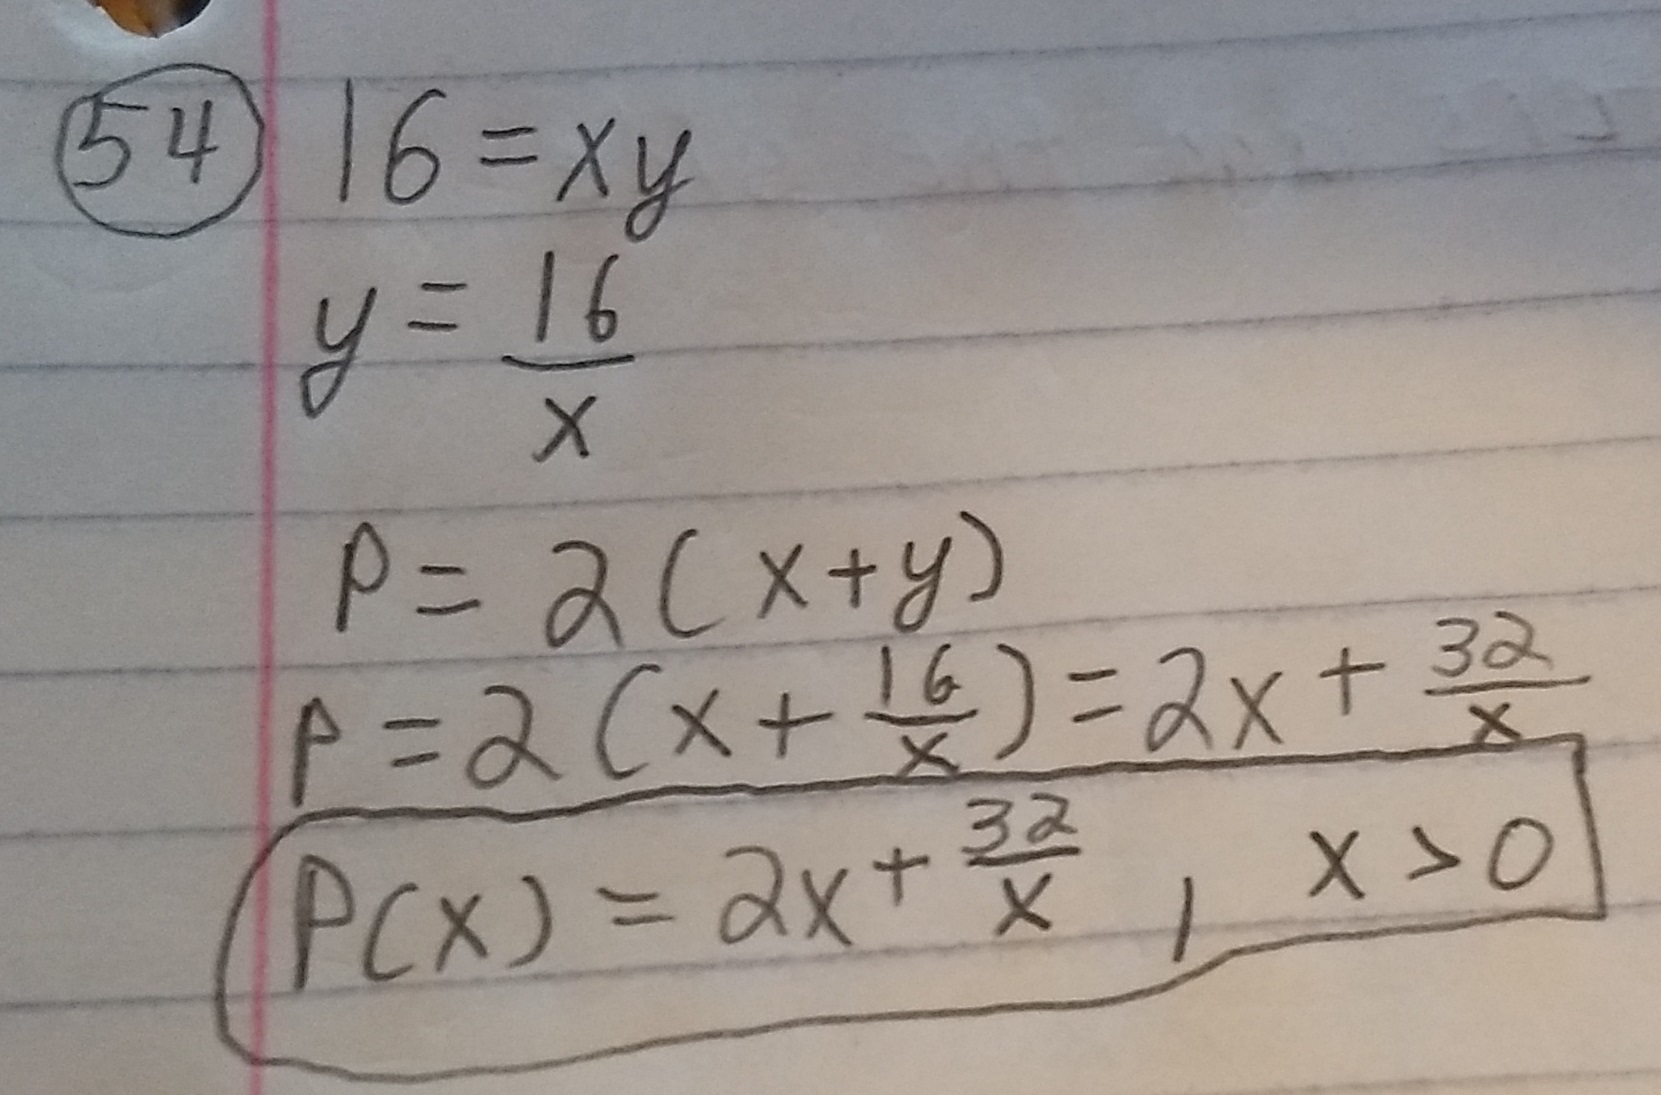 54 16 = xy
y = 16/x
P = 2(x+y)
P = 2(x + 16/x) = 2x + 32/x
P(x) = 2x + 32/x , x > 0